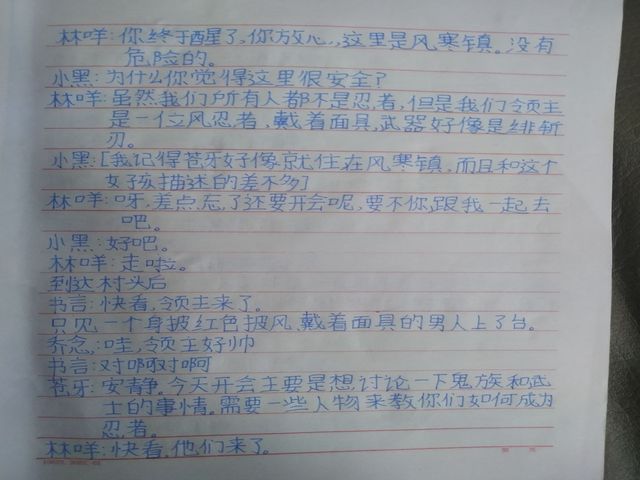 林咩:你终于醒了,你放心,这里是风寒镇。没有
危险的。
小黑:为什么你觉得这里很安全?
林咩:虽然我们所有人都不是忍者,但是我们领主
是一位风忍者,戴着面具,武器好像是绯斩
刃。
小黑:[我记得苍牙好像就住在风寒镇,而且和这个
女孩描述的差不多]
林咩:呀,差点忘了还要开会呢,要不你跟我一起去
吧。
小黑:好吧。
林咩:走啦。
到达村头后
书言:快看,领主来了。
只见一个身披红色披风,戴着面具的男人上了台。
乔念:哇,领主好帅
书言:对啊对啊
苍牙:安静。今天开会主要是想讨论一下鬼族和武
士的事情。需要一些人物来教你们如何成为
忍者。
林咩:快看,他们来了。